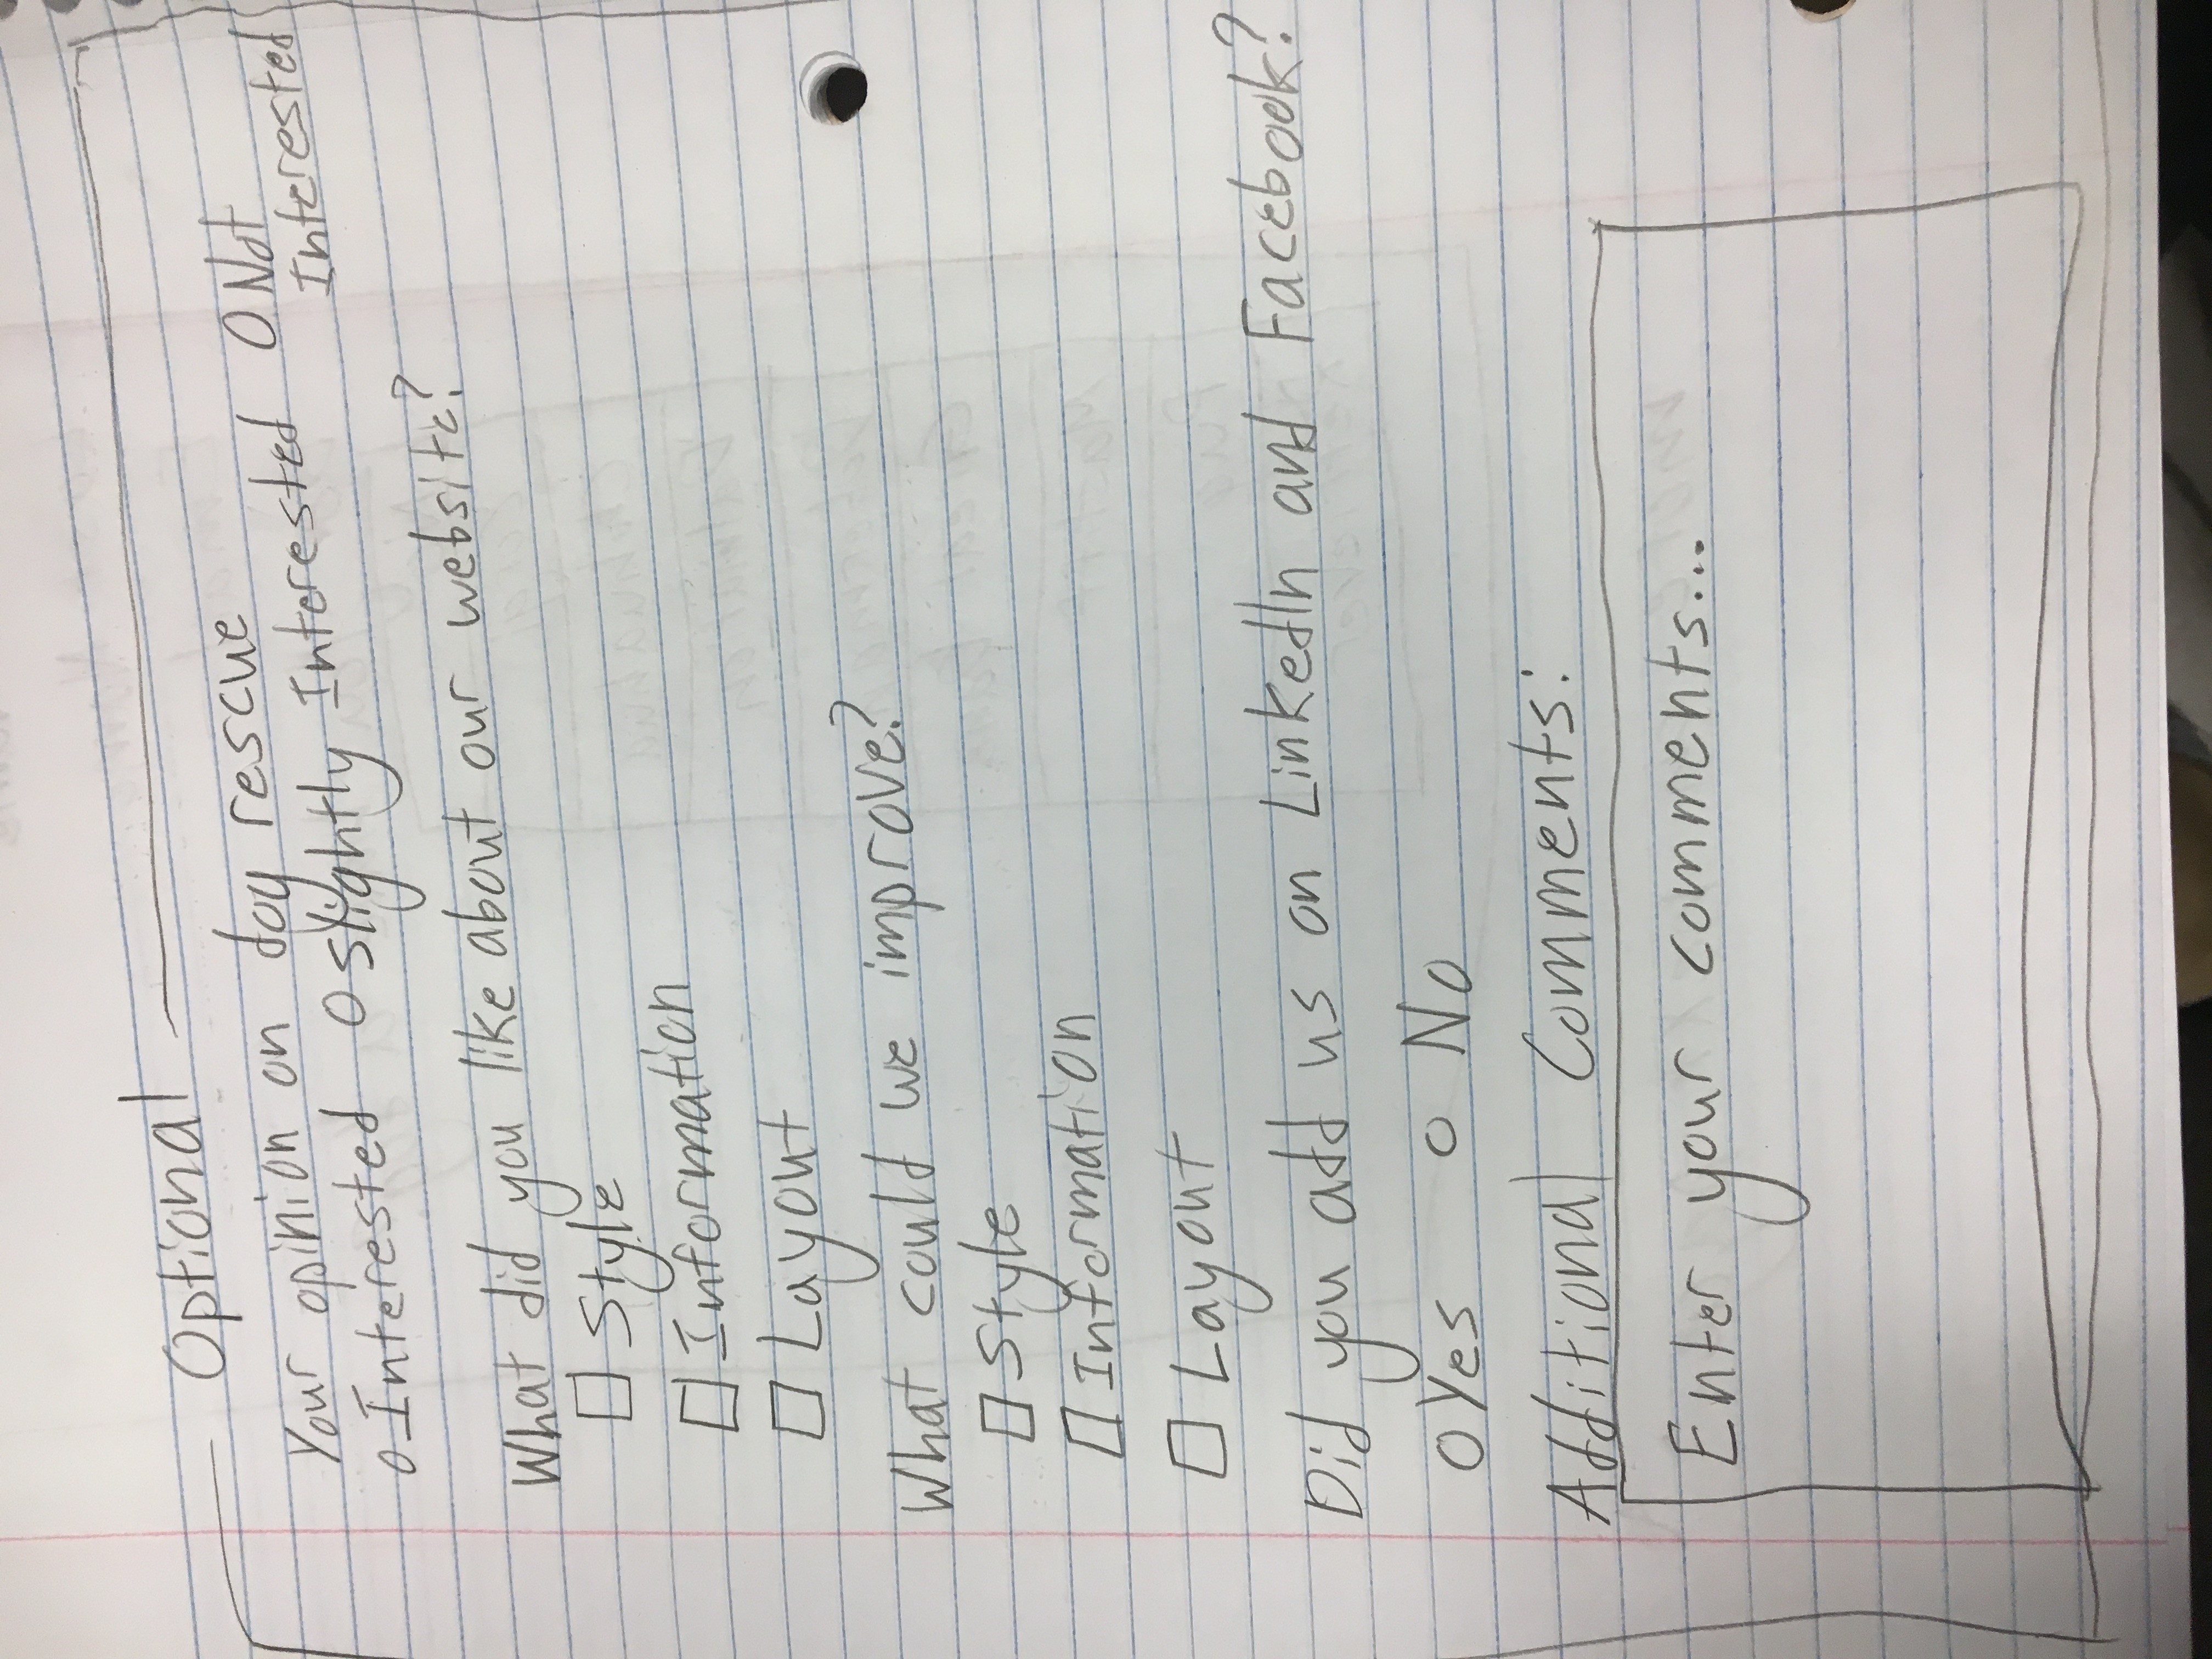 Optional
Your opinion on dog rescue
O Interested O Slightly Interested O Not
Interested
What did you like about our website?
Style
Information
Layout
What could we improve?
Style
Information
Layout
Did you add us on LinkedIn and Facebook?
O Yes O No
Additional Comments:
Enter your comments...